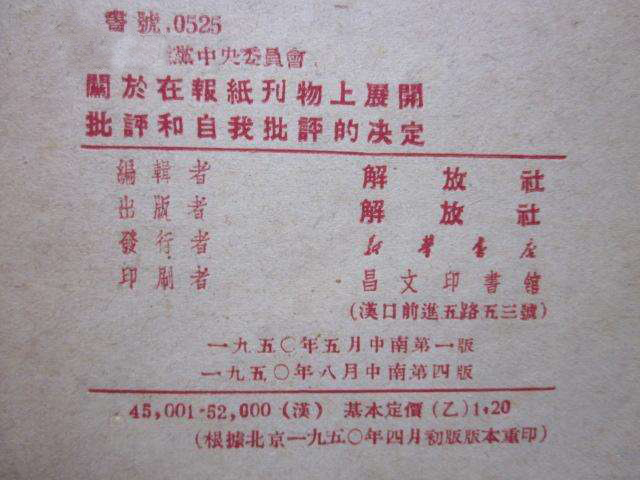 書號.0525
黨中央委員會
關於在報紙刊物上展開
批評和自我批評的决定
編輯者 解放社
出版者 解放社
發行者 新華書店
印刷者 昌文印書館
(漢口前進五路五三號)
一九五〇年五月中南第一版
一九五〇年八月中南第四版
45,001-52,000 (漢) 基本定價(乙)1.20
(根據北京一九五〇年四月初版版本重印)